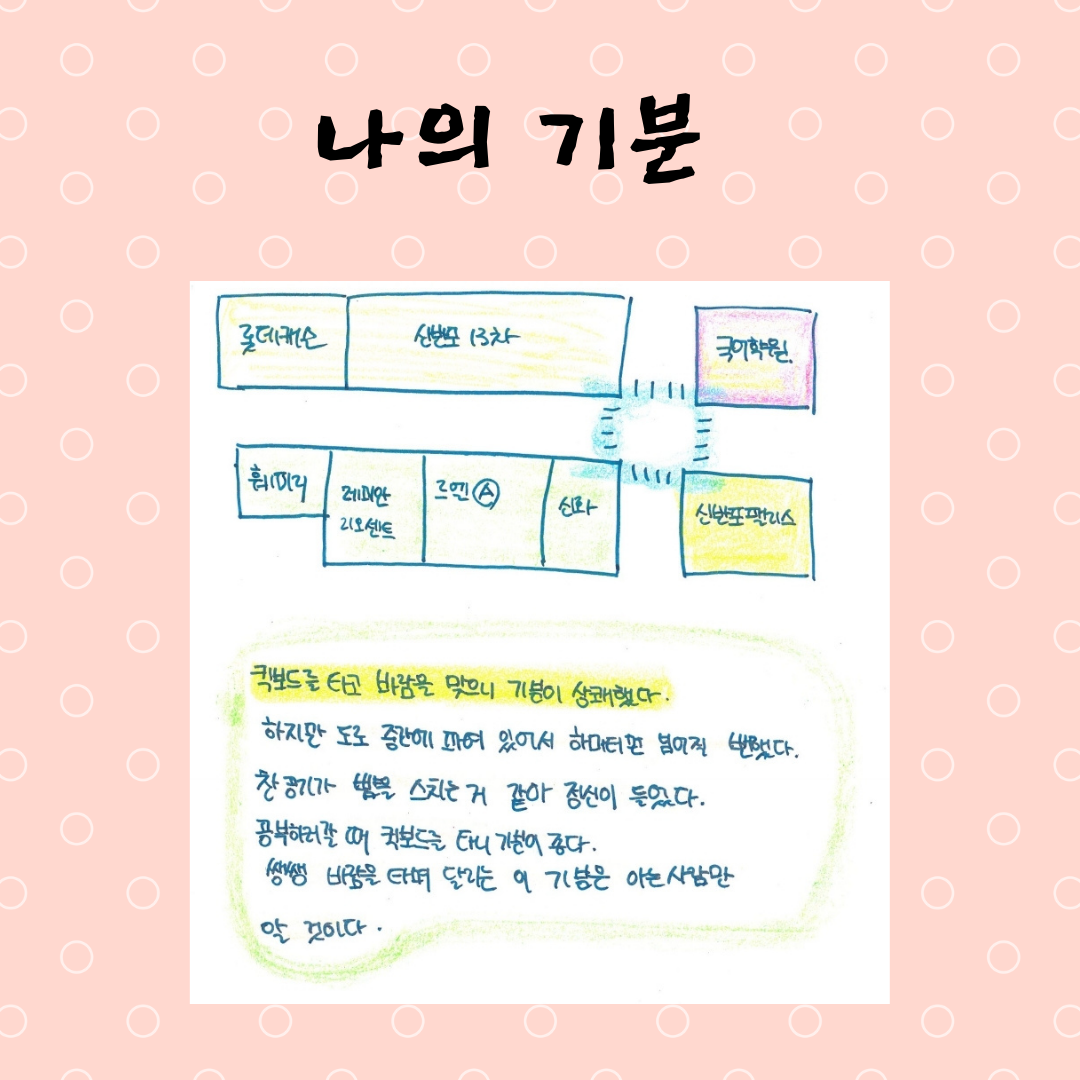 나의 기분
롯데캐슬 신반포 13차 국어학원.
훼미리 래미안 르엔 Ⓐ 신화 신반포팰리스
리오센트
킥보드를 타고 바람을 맞으니 기분이 상쾌했다.
하지만 도로 중간에 파여 있어서 하마터면 넘어질 뻔했다.
찬 공기가 뺨을 스치는 거 같아 정신이 들었다.
공부하러갈 때 킥보드를 타니 기분이 좋다.
쌩쌩 바람을 타며 달리는 이 기분은 아는 사람만
알 것이다.